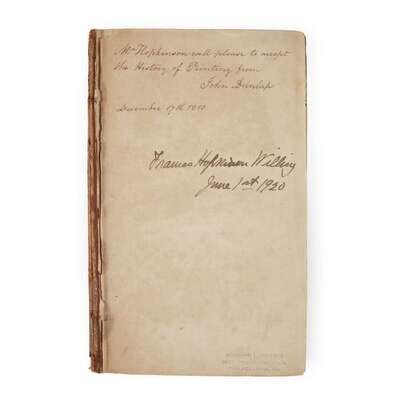 Mr Hopkinson will please to accept
the History of Printing from
John Dunlap
December 17th 1810
Frances Hopkinson Willing
June 1st 1920
PHILADELPHIA, PA.